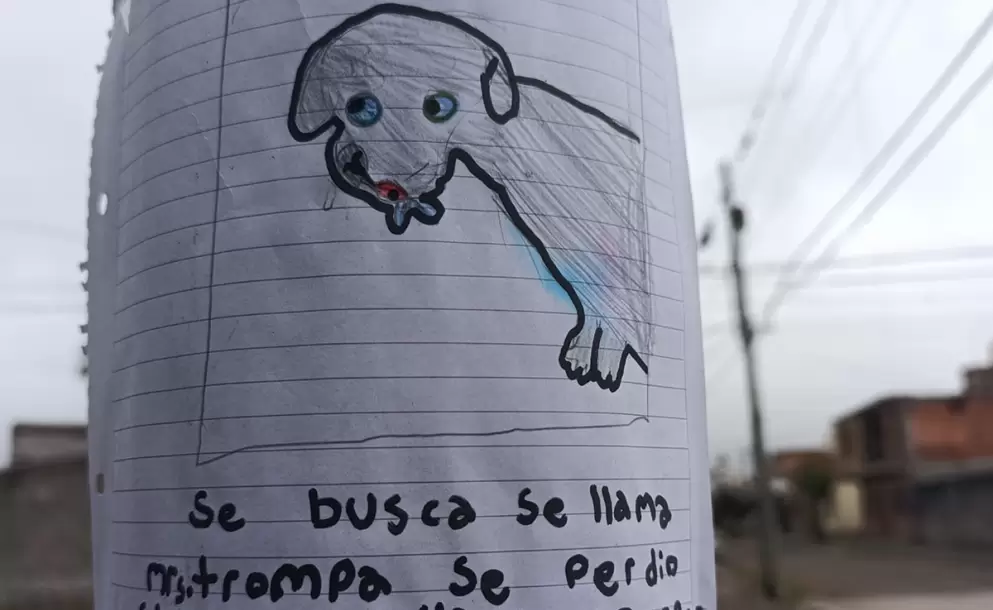 Se busca Se llama
mrs.trompa Se Perdio